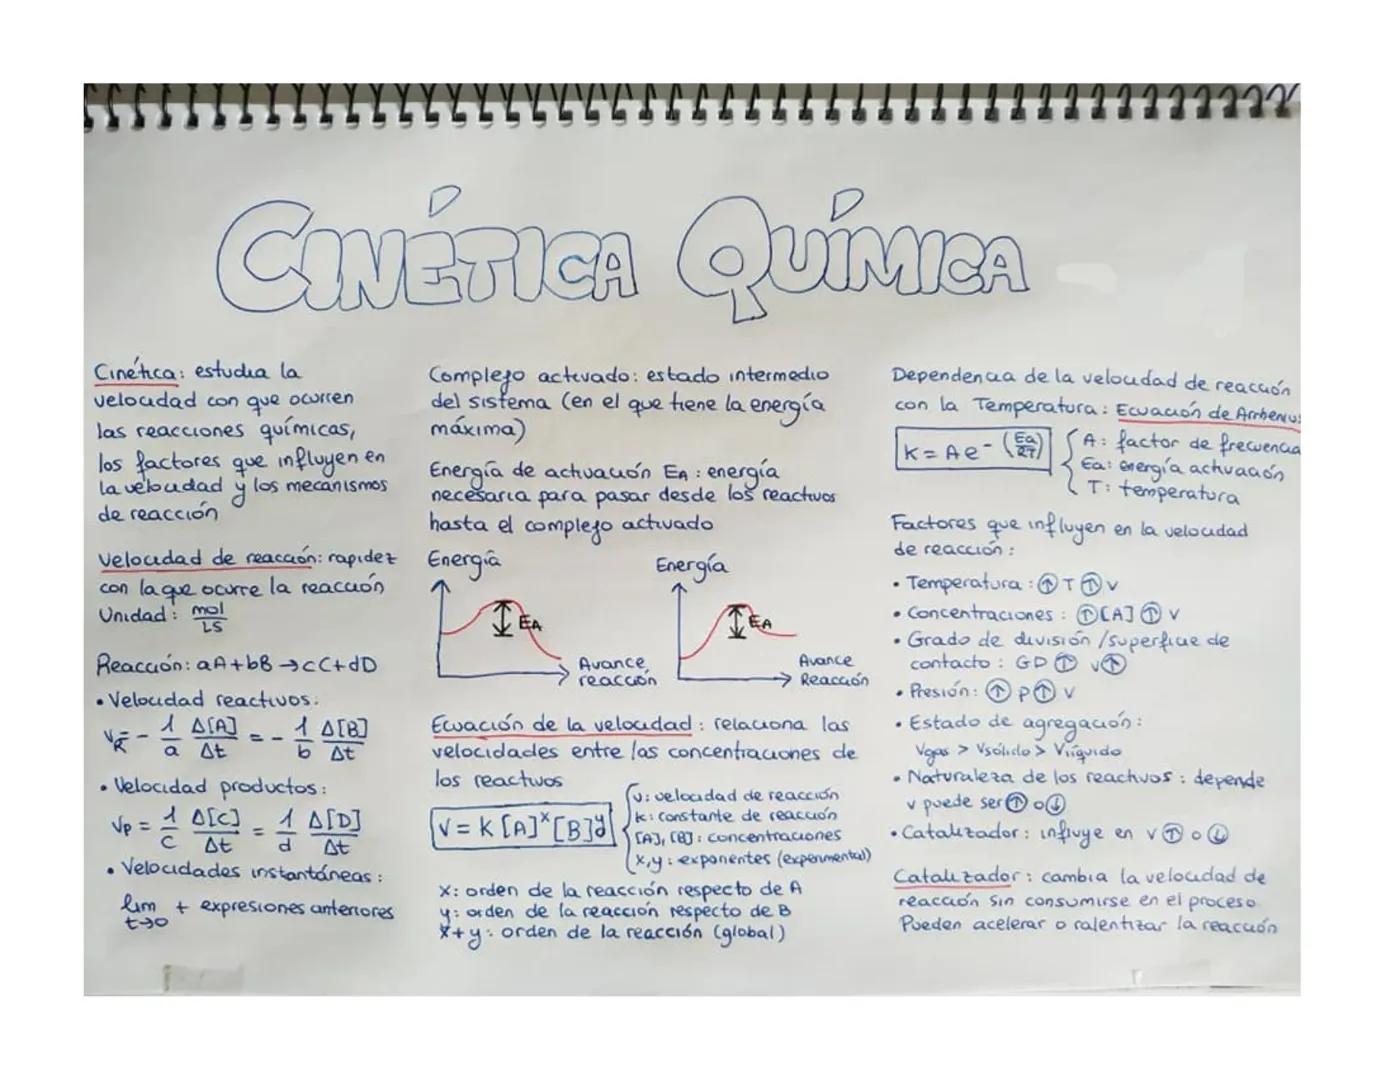 CINÉTICA QUÍMICA
Cinética: estudia la
velocidad con que ocurren
las reacciones químicas,
los factores que influyen en
la velocidad y los mecanismos
de reacción
Velocidad de reacción: rapidez
con la que ocurre la reacción
Unidad: mol/LS
Reacción: aA+bB → cC+dD
• Velocidad reactivos:
V_R = - 1/a Δ[A]/Δt = - 1/b Δ[B]/Δt
• Velocidad productos:
Vp = 1/c Δ[C]/Δt = 1/d Δ[D]/Δt
• Velocidades instantáneas:
lim t→0 + expresiones anteriores
Complejo activado: estado intermedio
del sistema (en el que tiene la energía
máxima)
Energía de activación EA: energía
necesaria para pasar desde los reactivos
hasta el complejo activado
Energía
EA
Avance
reacción
Energía
EA
Avance
Reacción
Ecuación de la velocidad: relaciona las
velocidades entre las concentraciones de
los reactivos
V = K [A]^x [B]^y
v: velocidad de reacción
k: constante de reacción
[A], [B]: concentraciones
x,y: exponentes (experimental)
x: orden de la reacción respecto de A
y: orden de la reacción respecto de B
x+y: orden de la reacción (global)
Dependencia de la velocidad de reacción
con la Temperatura: Ecuación de Arrhenius
K = A e - (Ea/RT)
A: factor de frecuencia
Ea: energía activación
T: temperatura
Factores que influyen en la velocidad
de reacción:
• Temperatura: ↑ T ↑ v
• Concentraciones: ↑ [A] ↑ v
• Grado de división / superficie de
contacto: GD ↑ v ↑
• Presión: ↑ p ↑ v
• Estado de agregación:
Vgas > Vsólido > Vlíquido
• Naturaleza de los reactivos: depende
v puede ser ↑ o ↓
• Catalizador: influye en v ↑ o ↓
Catalizador: cambia la velocidad de
reacción sin consumirse en el proceso.
Pueden acelerar o ralentizar la reacción